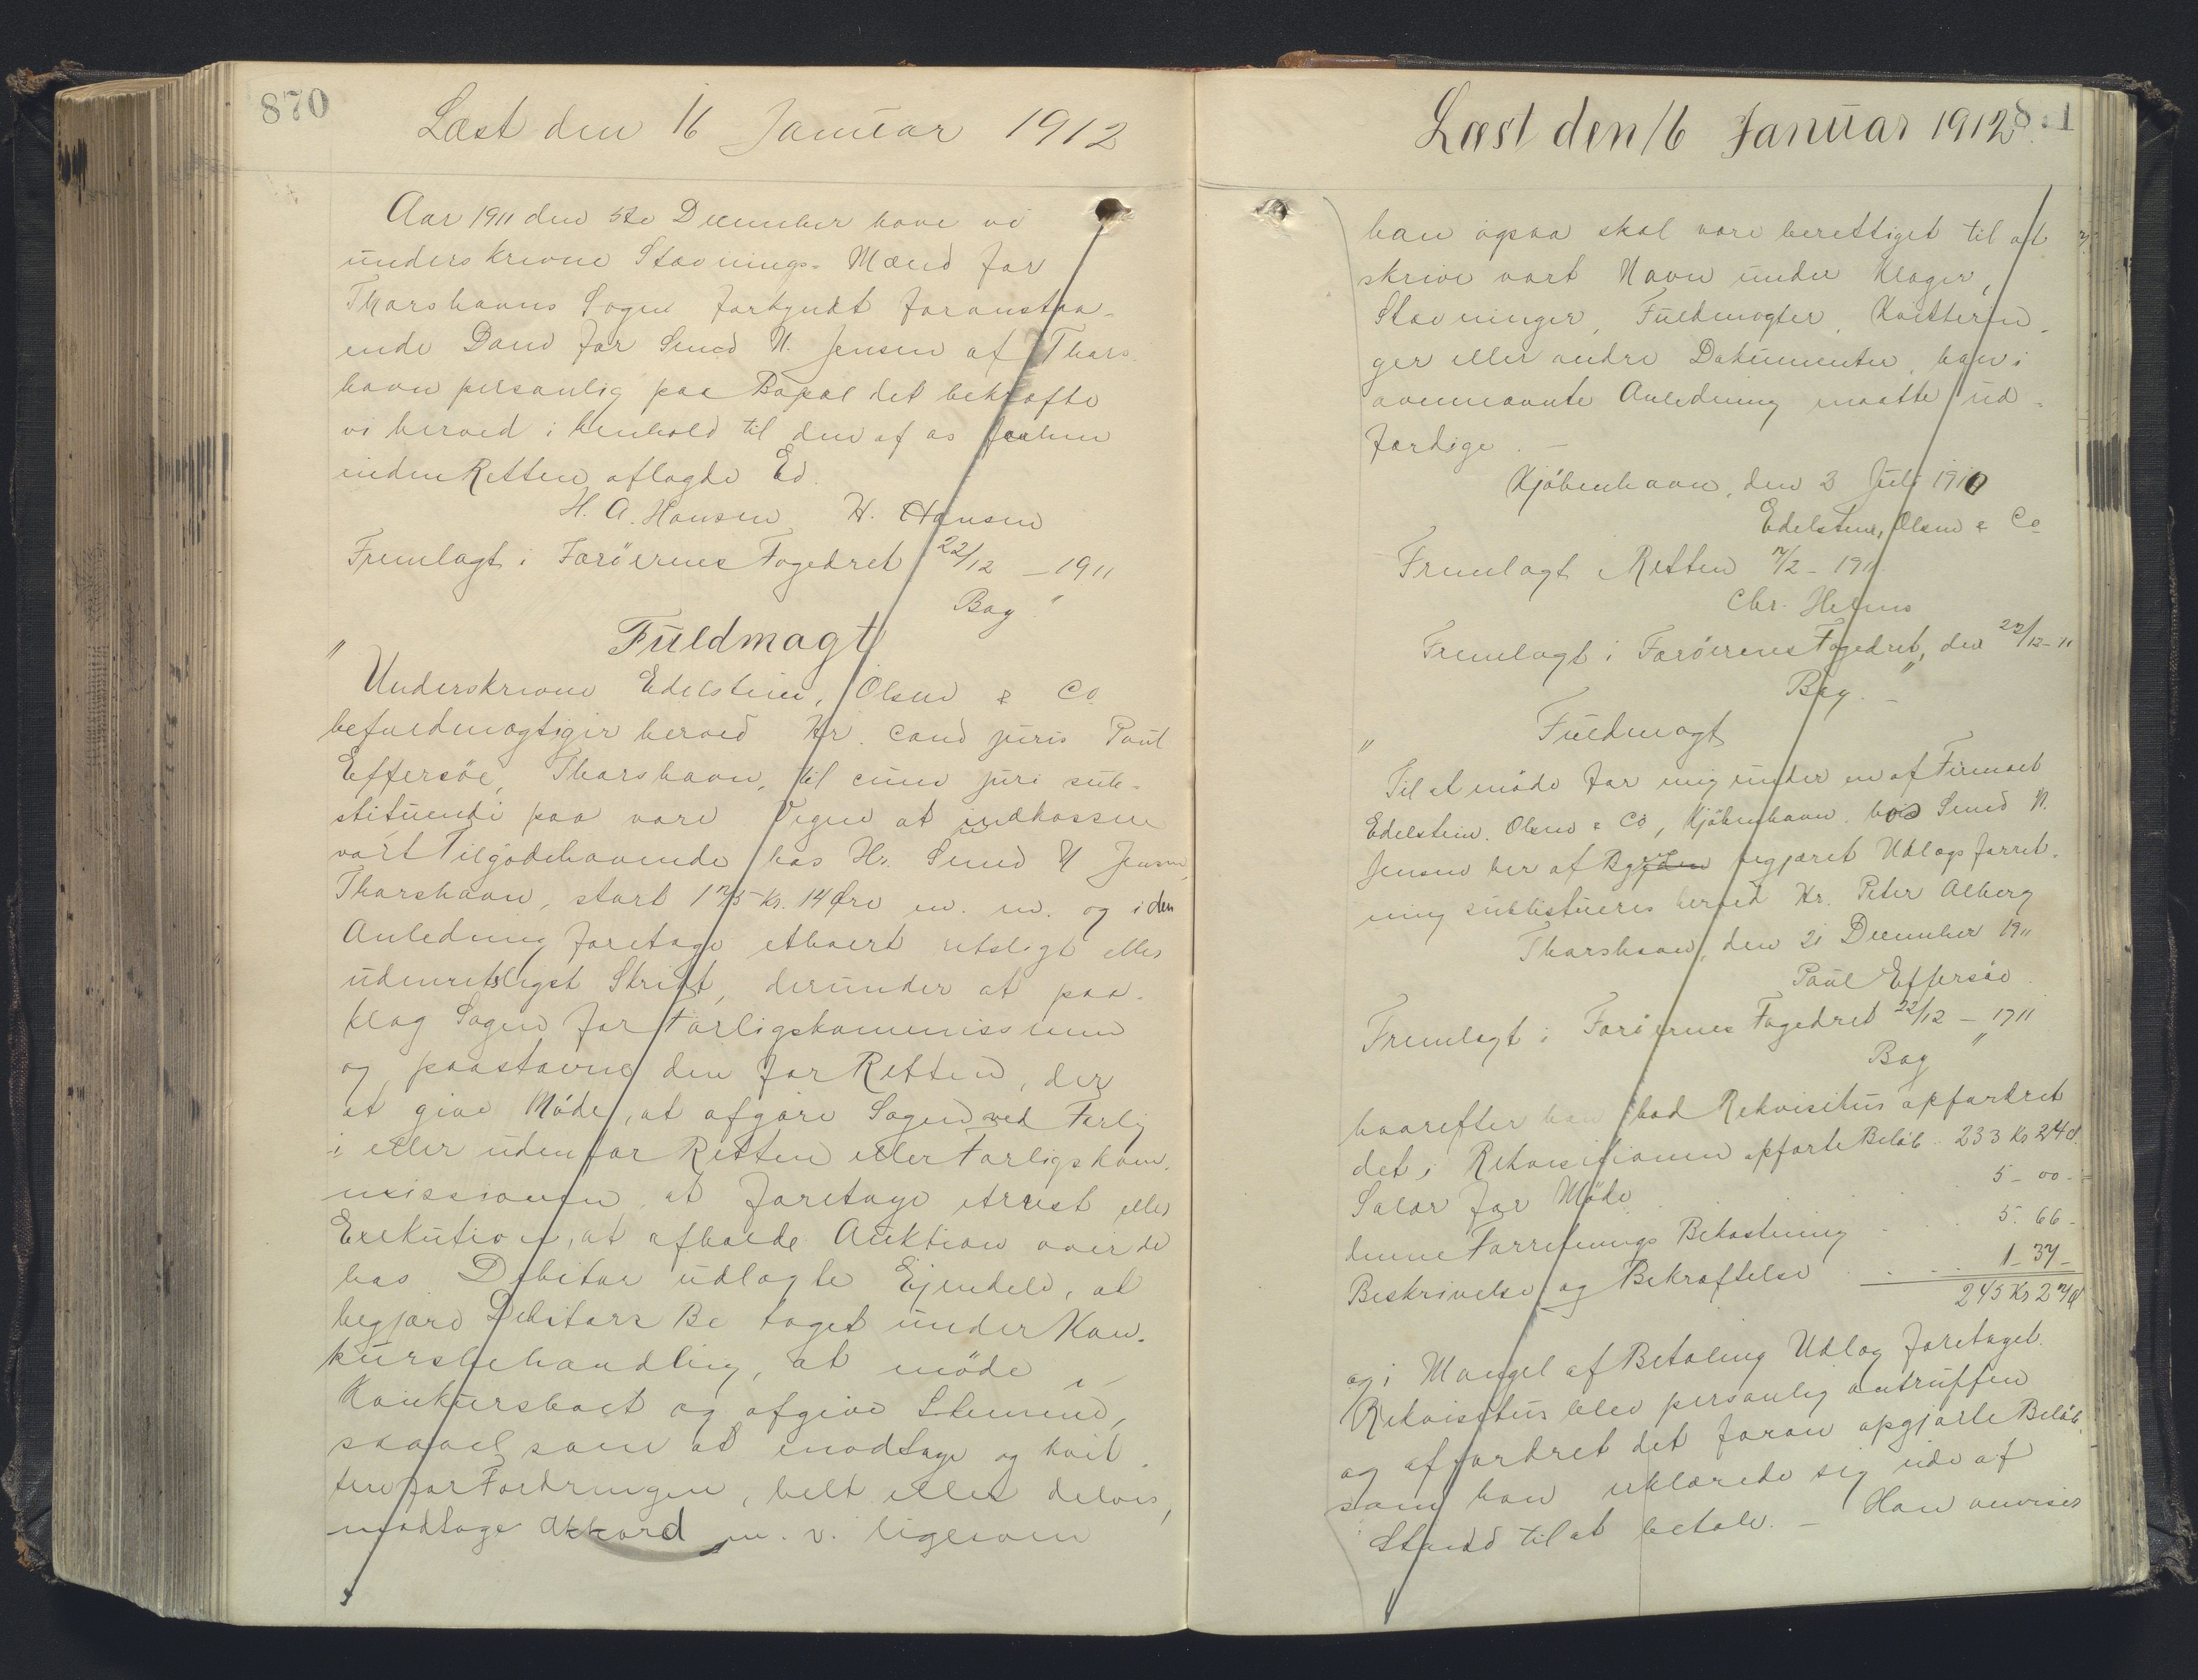 870
Læst den 16 Januar 1912
Aar 1911 den 5te December have vi
underskrevne Stævnings-Mænd for
Thorshavns Sogn forkyndt foranstaa-
ende Dom for Smed N. Jensen af Thors-
havn personlig paa Bopæl det bekræfte
vi herved i Henhold til den af os
inden Retten aflagde Ed.
H. A. Hansen H. Hansen
Fremlagt i Færöernes Fogedret 22/12 - 1911
Bay "
Fuldmagt
" Underskrevne Edelstein, Olsen & Co
befuldmægtiger herved Hr. cand juris Poul
Effersöe, Thorshavn, til cum juri sub-
stituendi paa vore Vegne at indkassere
vort Tilgodehavende hos Hr. Smed N Jensen,
Thorshavn, stort 175 Kr. 14 Øre m. m. og i den
Anledning foretage ethvert retsligt eller
udenretsligst Skridt, derunder at paa-
klag Sagen for Forligskommissionen
og paastævne den for Retten, der
at give Möde, at afgøre Sagen ved Forlig
i eller udenfor Retten eller Forligskom-
missionen, at foretage Arrest eller
Exekution, at afholde Auktion over de
hos Debitor udlagte Ejendele, at
begjære Debitors Bo taget under Kon-
kursbehandling, at møde i
Konkursboet og afgive Stemme,
saavel som at modtage og kvit-
tere for Fordringen, helt eller delvis,
modtage Akkord m. v. ligesom
Læst den 16 Januar 1912
han ogsaa skal være berettiget til at
skrive vort Navn under Klager,
Stævninger, Fuldmagter, Kvitterin-
ger eller andre Dokumenter, han i
ovennævnte Anledning maatte ud-
færdige. -
Kjöbenhavn, den 3 Juli 1910
Edelstein, Olsen & Co
Fremlagt i Retten 7/2 - 1911
Chr. Helms
Fremlagt i Færöernes Fogedret, den 22/12 - 11
Bay. "
" Fuldmagt
Til at möde for mig under en af Firmaet
Edelstein, Olsen & Co, Kjöbenhavn hos Smed N.
Jensen her af Byen begjæret Udlægsforret-
ning substitueres herved Hr. Peter Alberg
Thorshavn, den 21 December 1911
Poul Effersöe
Fremlagt i Færöernes Fogedret 22/12 - 1711
Bay "
hvorefter han bad Rekvisitus opfordret
det i Rekvisitionen opførte Beløb .. 233 Kr 24 Ø.
Salær for Möde . . . 5 - 00 -
denne Forretnings Bekostning . . . 5. 66 -
Beskrivelse og Bekræftelse . . . 1 - 37 -
245 Kr 27 Ø
og i Mangel af Betaling Udlæg foretaget.
Rekvisitus blev personlig antruffen
og affordret det foran opgjorte Beløb,
som han erklærede sig ude af
Stand til at betale. - Han anviser